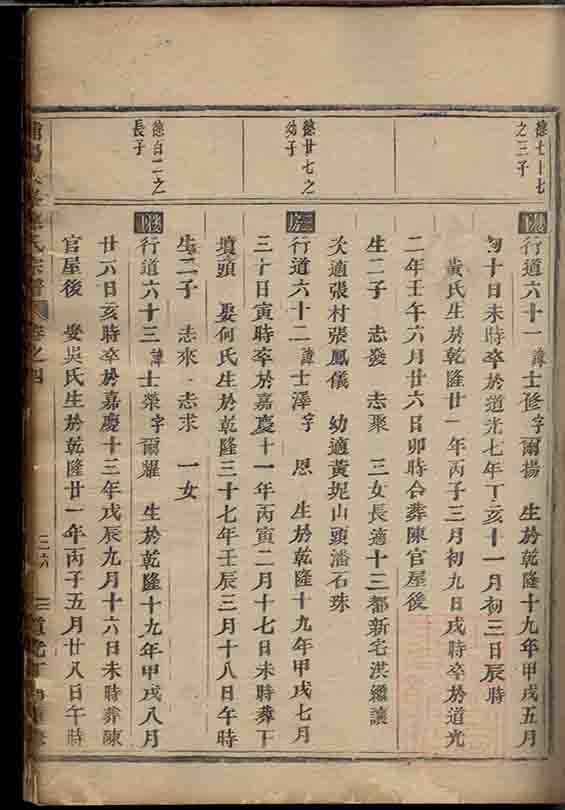 德七十七
之三子
行道六十一 諱士修字爾揚 生於乾隆十九年甲戌五月
初十日未時卒於道光七年丁亥十一月初三日辰時
黃氏生於乾隆廿一年丙子三月初九日戌時卒於道光
二年壬午六月廿六日卯時合葬陳官屋後
生二子 志發 志聚 三女長適十三都新宅洪繼讓
次適張村張鳳儀 幼適黃坭山頭潘石珠
德廿七之
幼子
行道六十二 諱士澤字 恩 生於乾隆十九年甲戌七月
三十日寅時卒於嘉慶十一年丙寅二月十七日未時葬下
墳頭 娶何氏生於乾隆三十七年壬辰三月十八日午時
生二子 志來 志求 一女
德百二之
長子
行道六十三 諱士榮字爾耀 生於乾隆十九年甲戌八月
廿六日亥時卒於嘉慶十三年戊辰九月十六日未時葬陳
官屋後 娶吳氏生於乾隆廿一年丙子五月廿八日午時
氏宗譜 卷之四 三六 道光丁